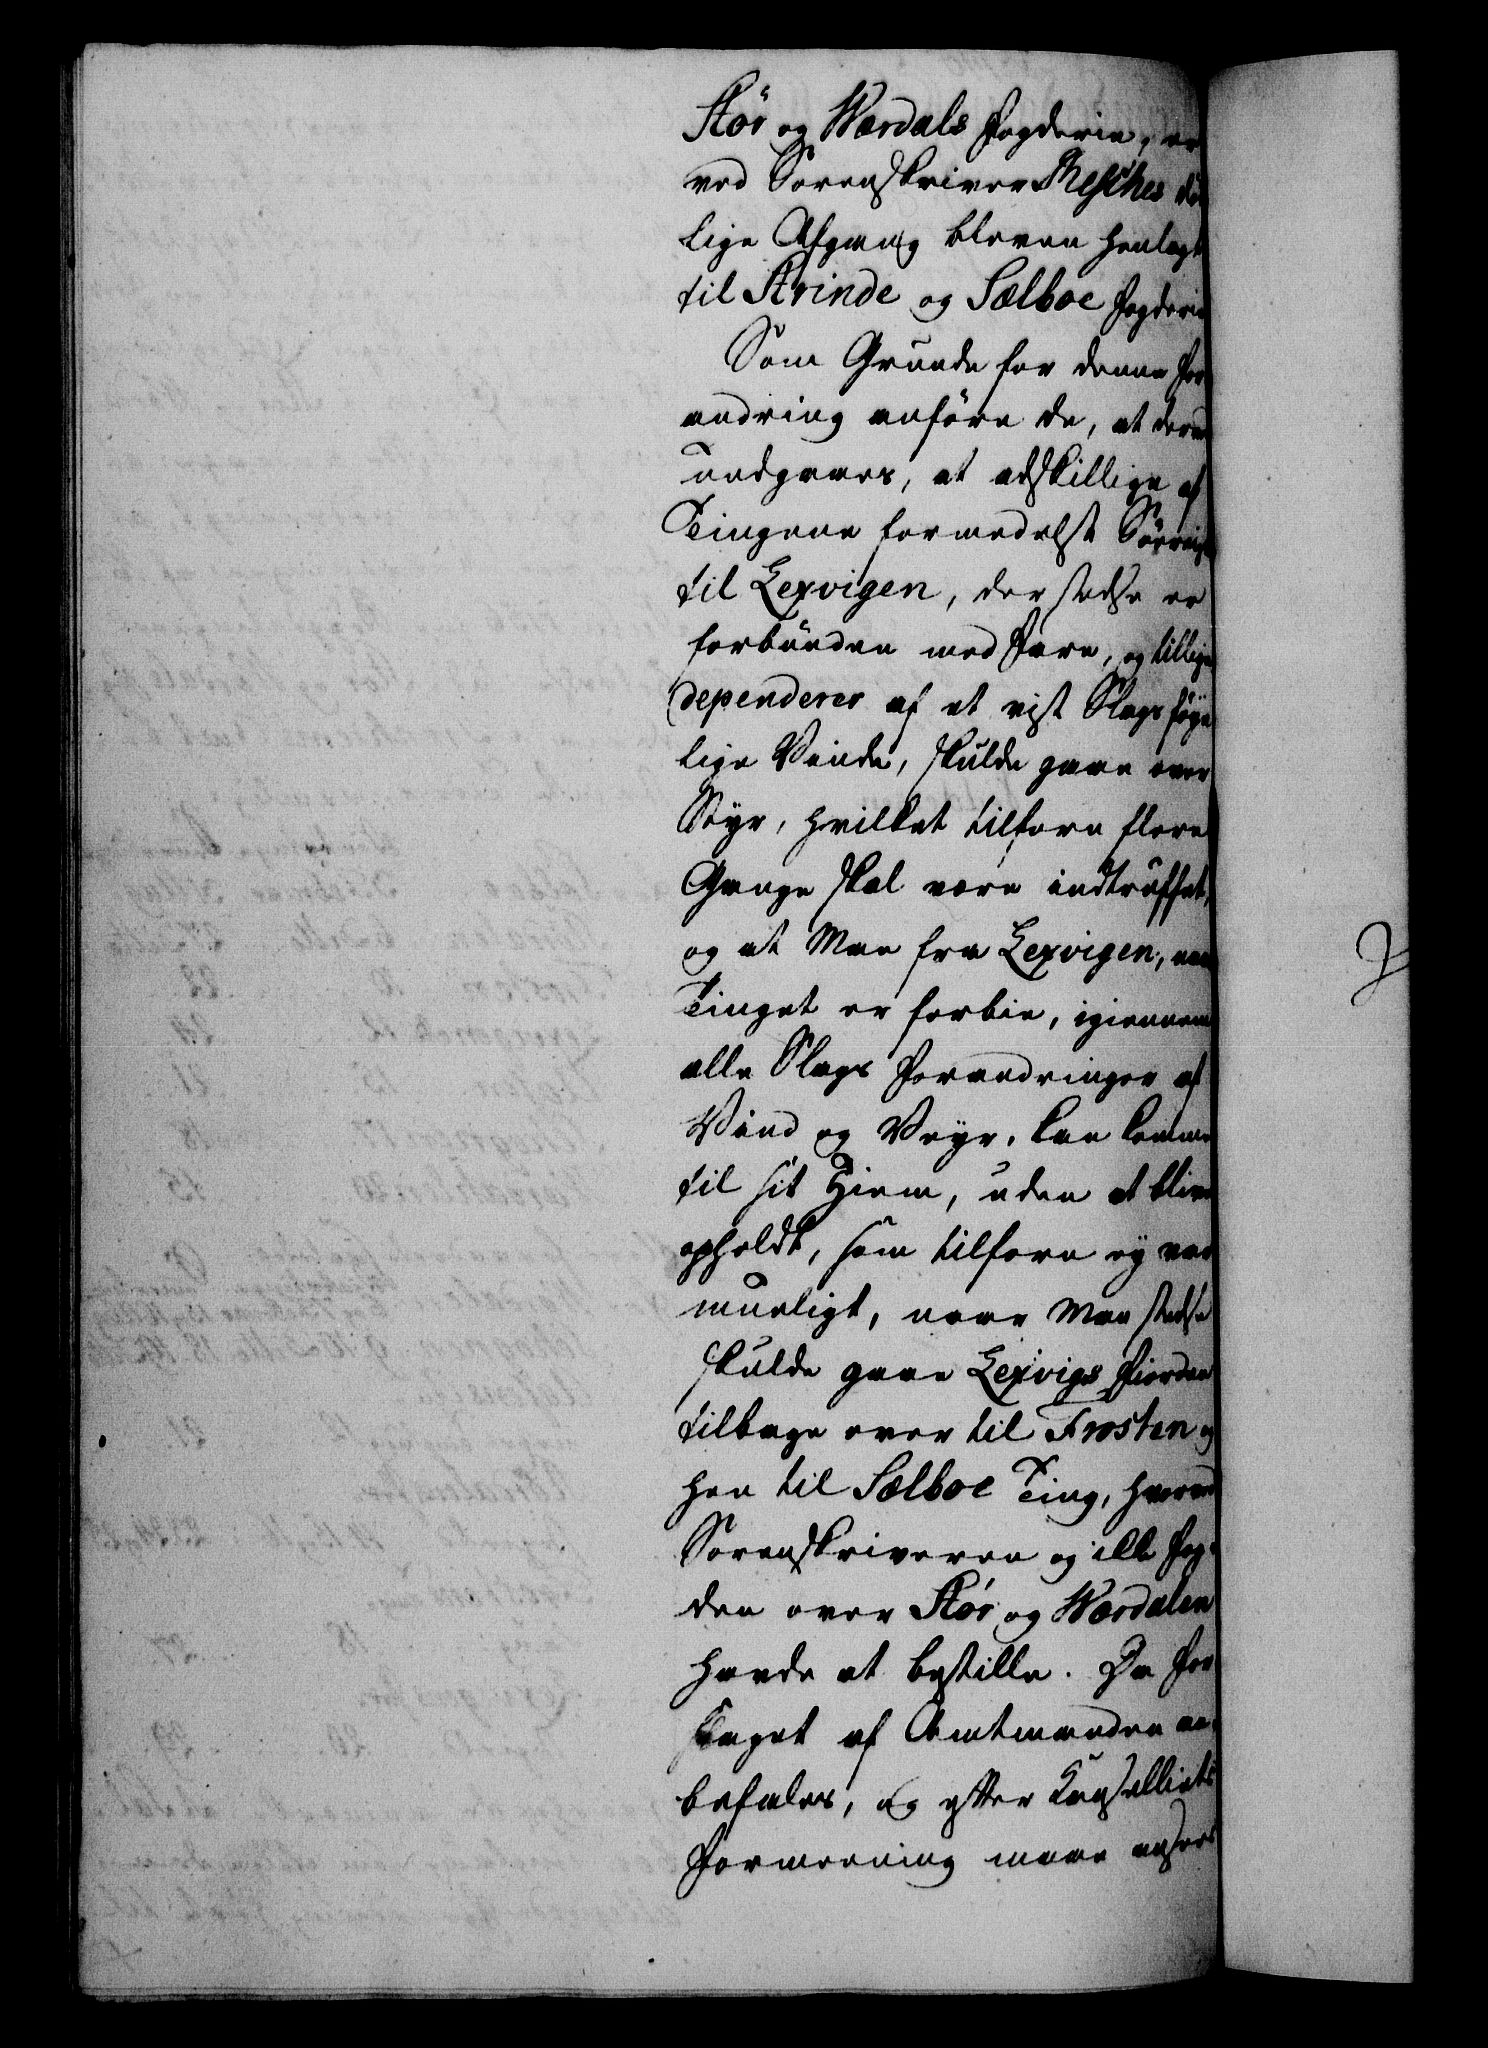 Stör og Wærdals Fogderie, er
ved Sorenskriver Resches dö
lige Afgang bleven henlagt
til Strinde og Sælboe Fogderie
Som Grunde for denne For
andring anföre de, at derved
undgaaes, at adskillige af
Tingene formedelst Söereise
til Lexvigen, der stedse er
forbunden med Fare, og tillige
dependerer af et vist Slags föye
lige Vinde, skulde gaae over
Styr, hvilket tilforn flere
Gange skal være indtruffet,
og at Man fra Lexvigen, naar
Tinget er forbie, igiennem
alle Slags Forandringer af
Vind og Veyr, kan komme
til sit Hiem, uden at blive
opholdt, som tilforn ey var
mueligt, naar Man stedse
skulde gaae Lexvigs Fiorden
tilbage over til Frosten og
hen til Sælboe Ting, hvorved
Sorenskriveren og ikke Fog-
den over Stör og Wærdalen
havde at bestille. Da For
slaget af Amtmanden an-
befales, og efter Cancelliets
Formeening maae ansees